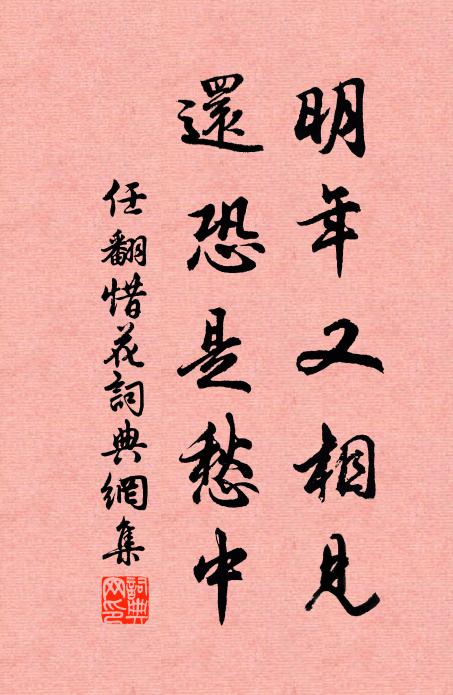 明年又相見
還恐是愁中
任翻惜花詞典網集
詞典網印